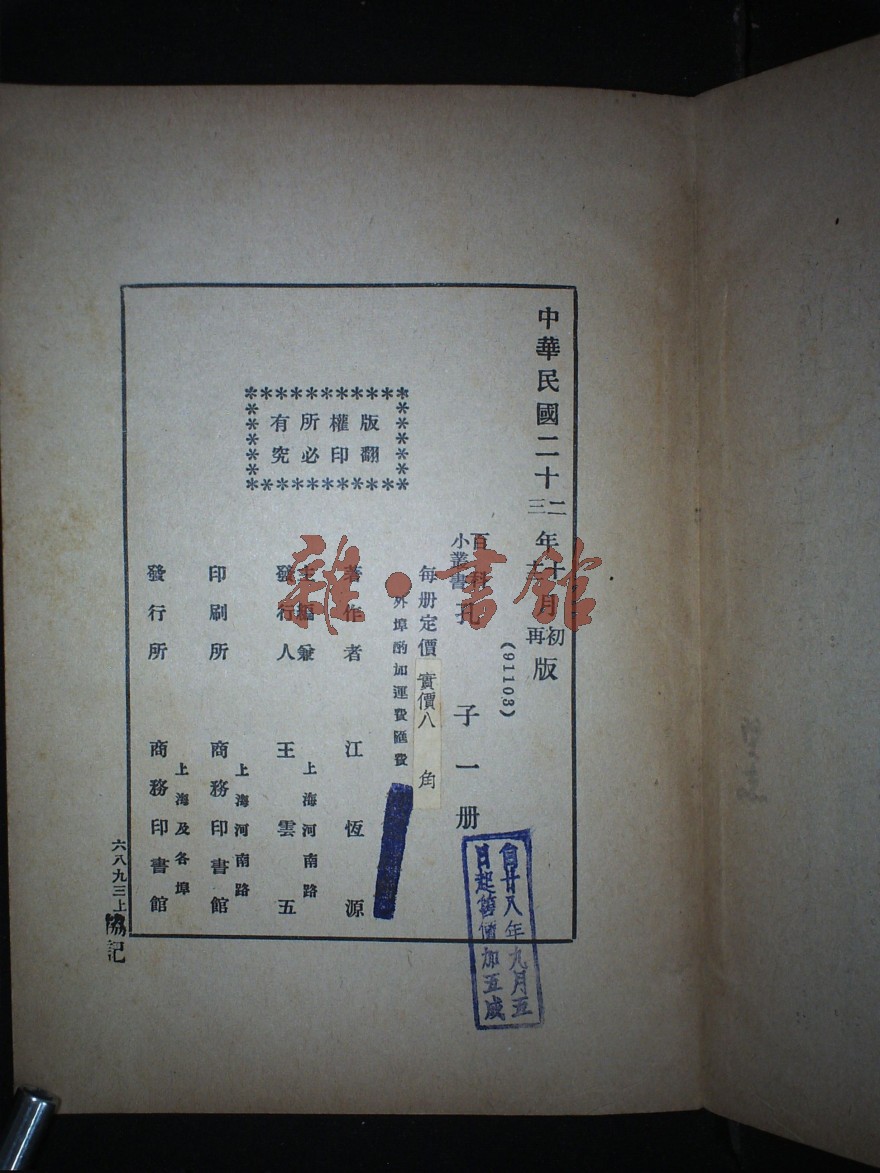 中華民國二十二三年十月初再版
(91103)
百科小叢書 孔子一册
每册定價實價八角
外埠酌加運費匯費
版權所有
翻印必究
著作者 江恆源
主編兼發行人 上海河南路 王雲五
印刷所 上海河南路 商務印書館
發行所 上海及各埠 商務印書館
六八九三上 協記
自廿八年九月五
日起價加五成
雜·書館